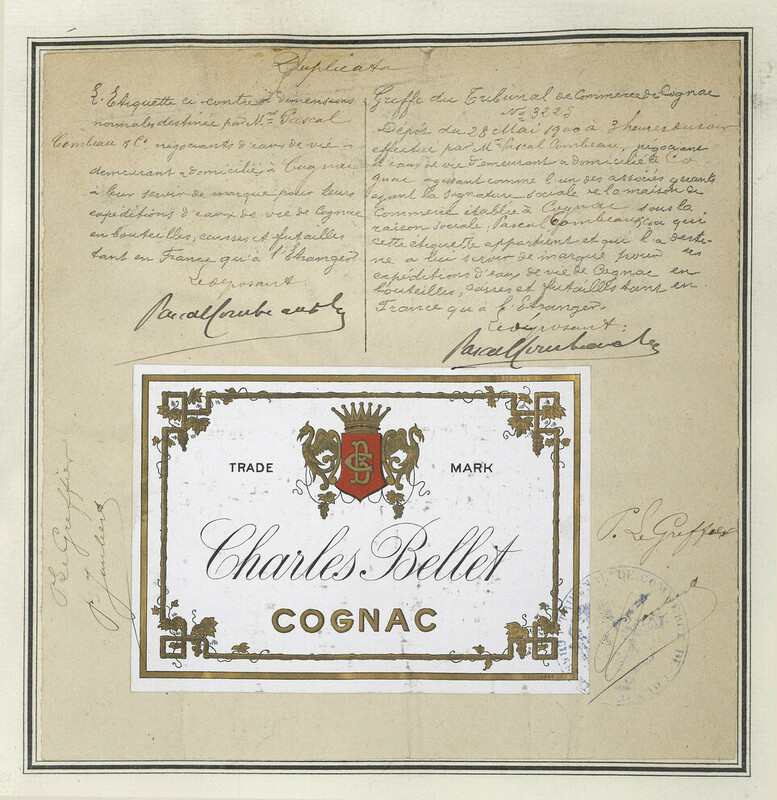 Duplicata
L'Etiquette ci-contre dimensions
normales destinée par Mrs Pascal
Combeau & Co négociants d'eaux de vie -
demeurant & domiciliés à Cognac
à leur servir de marque pour leurs
expéditions d'eaux de vie de Cognac
en bouteilles, caisses et futailles
tant en France qu'à l'Etranger
Le déposant
Pascal Combeau & Co
Greffe du Tribunal de Commerce de Cognac
No 3225
Dépôt du 28 Mai 1900 à 3 heures du soir
effectué par Mr Pascal Combeau, négociant
d'eaux de vie demeurant & domicilié à Co
gnac agissant comme l'un des associés gérants
ayant la signature sociale de la maison de
Commerce établie à Cognac sous la
raison sociale, Pascal Combeau & Co à qui
cette étiquette appartient et qui l'a desti-
né à lui servir de marque pour ses
expéditions d'eaux de vie de Cognac en
bouteilles, caisses et futailles tant en
France qu'à l'Etranger
Le déposant:
Pascal Combeau & Co
TRADE MARK
Charles Bellet
COGNAC
P. Le Greffier
P. Le Greffier
DE COMMERCE DE